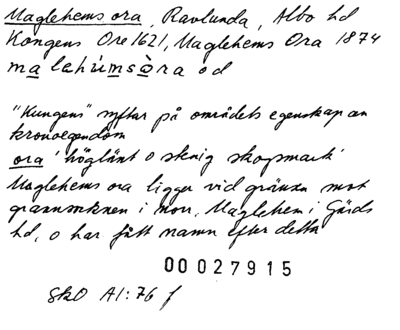 Maglehems ora, Ravlunda, Albo hd
Kongens Ore 1621, Maglehems Ora 1874
malehúmsòra od
"Kungens" syftar på områdets egenskap av
kronoegendom
ora 'höglänt o stenig skogsmark'
Maglehems ora ligger vid gränsen mot
grannsocknen i norr, Maglehem i Gärds
hd, o har fått namn efter detta
00027915
SkO A1:76 f